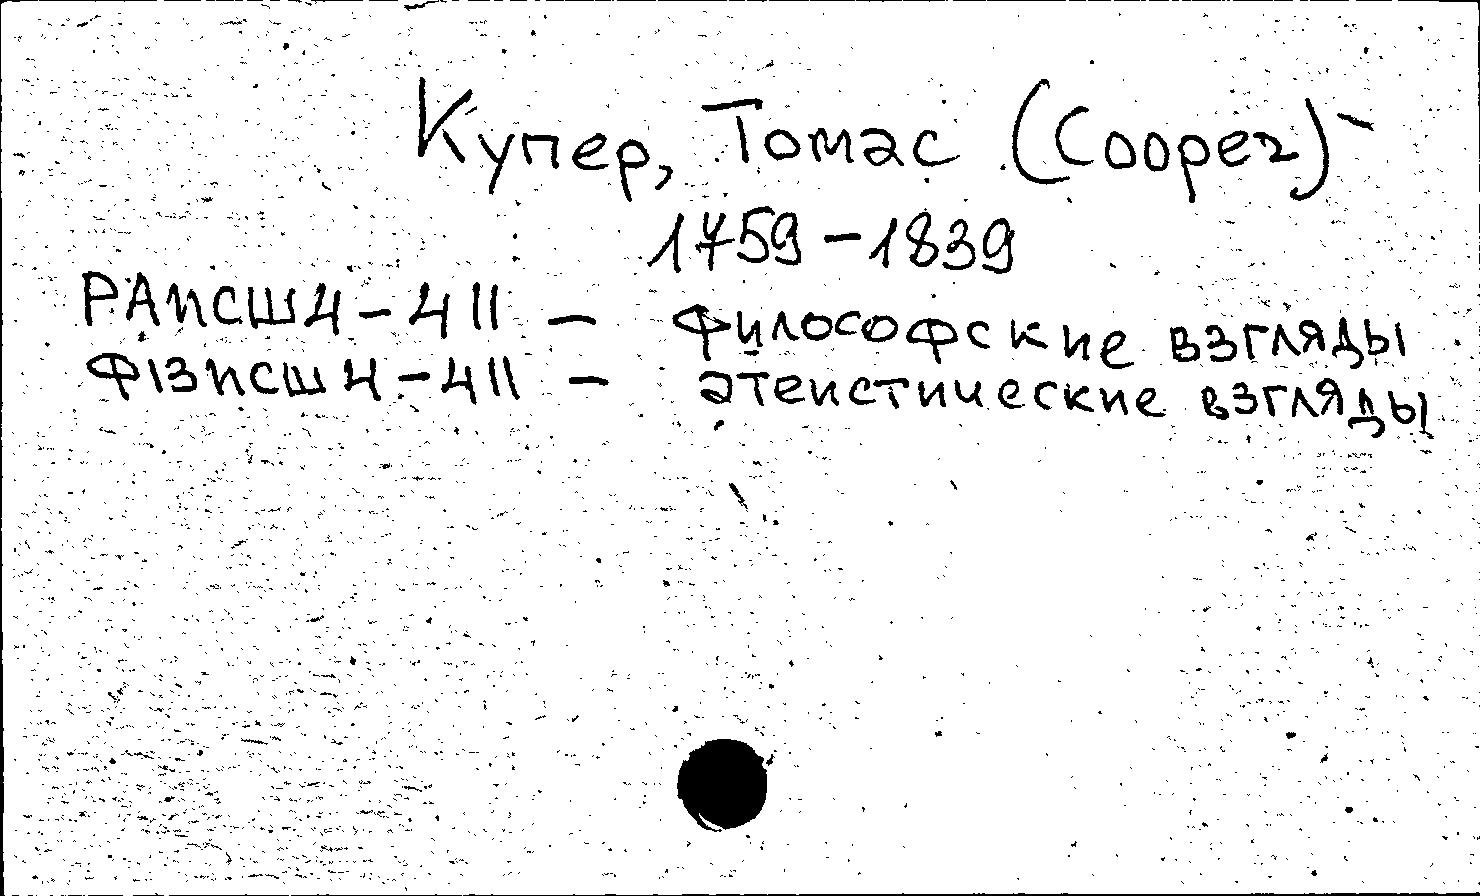 Купер, Томас (Cooper) -
1759-1839
РАИСШ4-4II - философские взгляды
Ф13ИСШ4-4II - атеистические взгляды